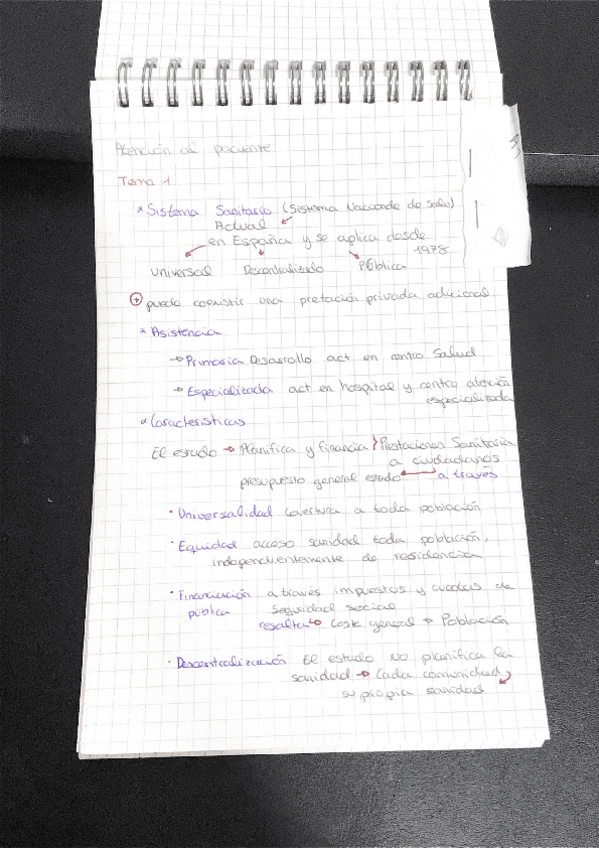 Atención al paciente
Tema 1
* Sistema Sanitario (Sistema Nacional de Salud)
Actual
en España y se aplica desde
1978
Universal Descentralizado Pública
+ puede coexistir una pretación privada adicional
* Asistencia
→ Primaria Desarrollo act en centro Salud
→ Especializada act en hospital y centro atención
especializada
* Características
El estado → Planifica y financia } Prestaciones Sanitaria
a ciudadanos
presupuesto general estado ← a través
· Universalidad covertura a toda población
· Equidad acceso sanidad toda población,
independientemente de residencia
· Financiación a través impuestos y cuotas de
pública Seguridad social
resalta → Coste general → Población
· Descentralización El estado No planifica la
sanidad → Cada comunidad
su propia sanidad